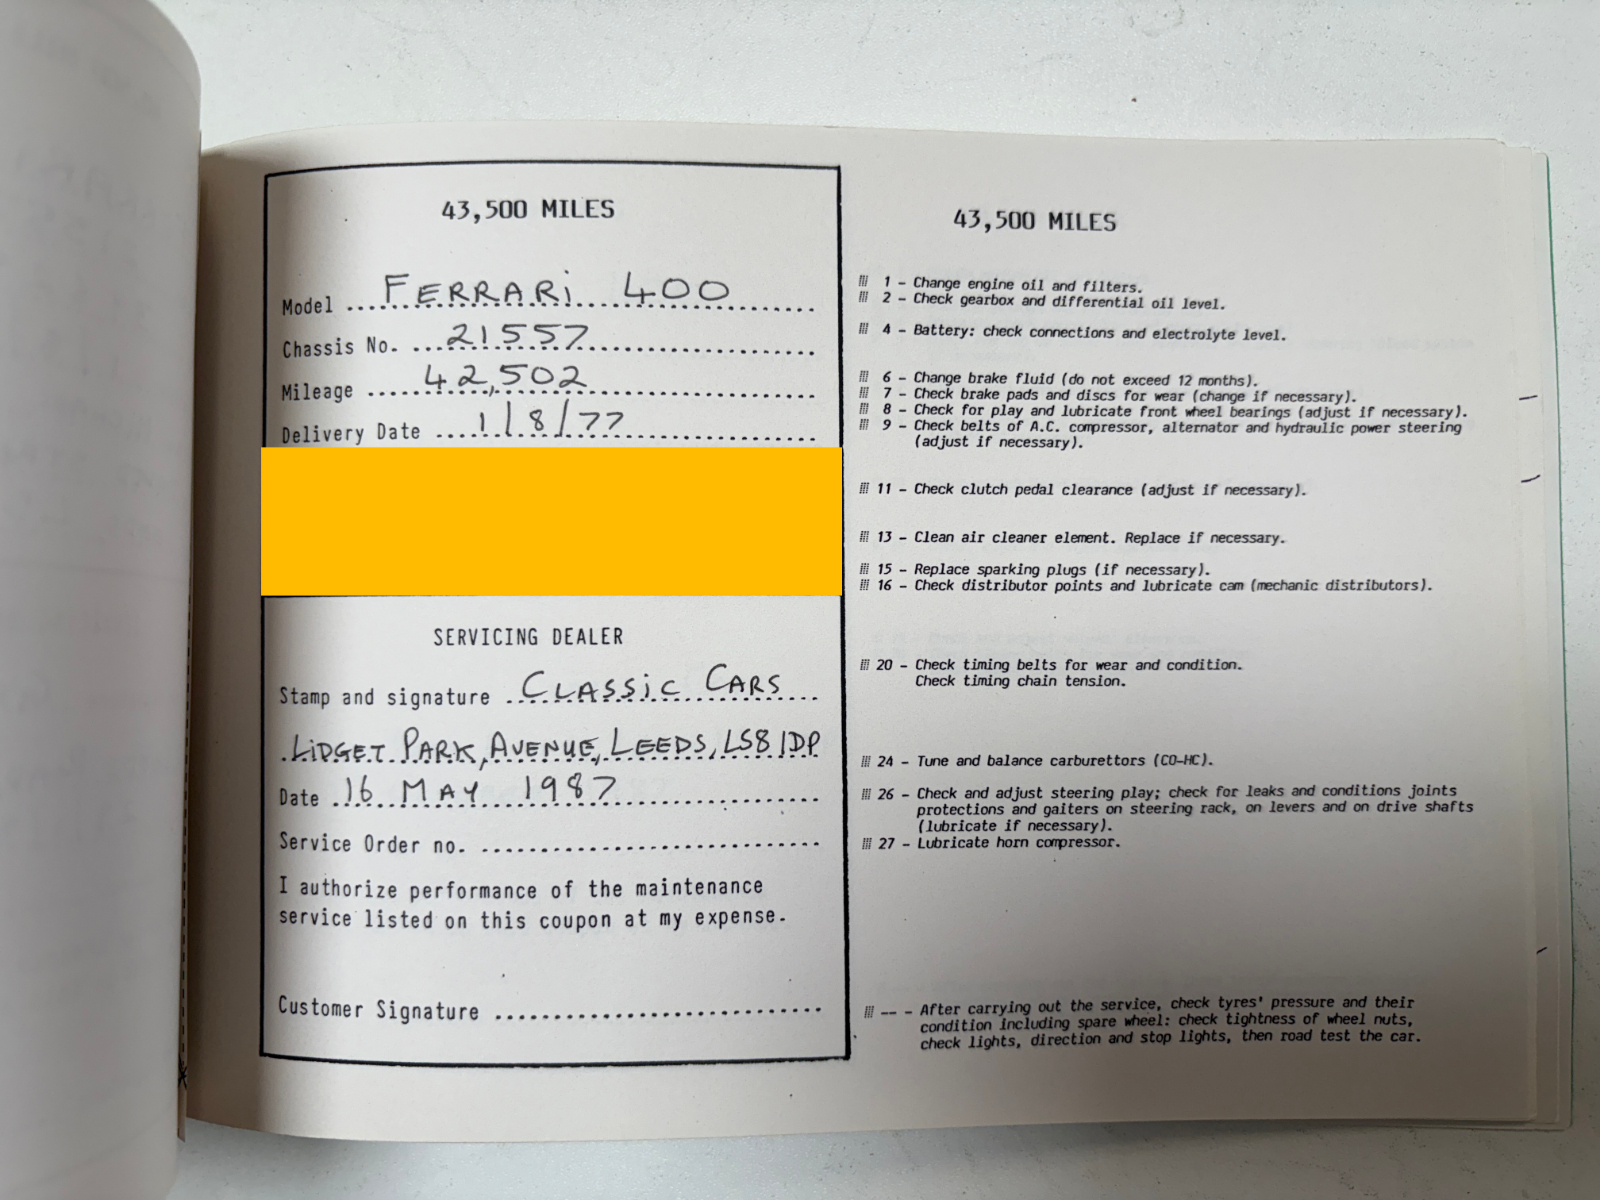 43,500 MILES
Model FERRARi 400
Chassis No. 21557
Mileage 42,502
Delivery Date 1/8/77
SERVICING DEALER
Stamp and signature CLASSiC CARS
LiDGET PARK, AVENUE, LEEDS, LS8 1DP
Date 16 MAY 1987
Service Order no.
I authorize performance of the maintenance
service listed on this coupon at my expense.
Customer Signature
43,500 MILES
1 - Change engine oil and filters.
2 - Check gearbox and differential oil level.
4 - Battery: check connections and electrolyte level.
6 - Change brake fluid (do not exceed 12 months).
7 - Check brake pads and discs for wear (change if necessary).
8 - Check for play and lubricate front wheel bearings (adjust if necessary).
9 - Check belts of A.C. compressor, alternator and hydraulic power steering
(adjust if necessary).
11 - Check clutch pedal clearance (adjust if necessary).
13 - Clean air cleaner element. Replace if necessary.
15 - Replace sparking plugs (if necessary).
16 - Check distributor points and lubricate cam (mechanic distributors).
20 - Check timing belts for wear and condition.
Check timing chain tension.
24 - Tune and balance carburettors (CO-HC).
26 - Check and adjust steering play; check for leaks and conditions joints
protections and gaiters on steering rack, on levers and on drive shafts
(lubricate if necessary).
27 - Lubricate horn compressor.
-- - After carrying out the service, check tyres' pressure and their
condition including spare wheel: check tightness of wheel nuts,
check lights, direction and stop lights, then road test the car.